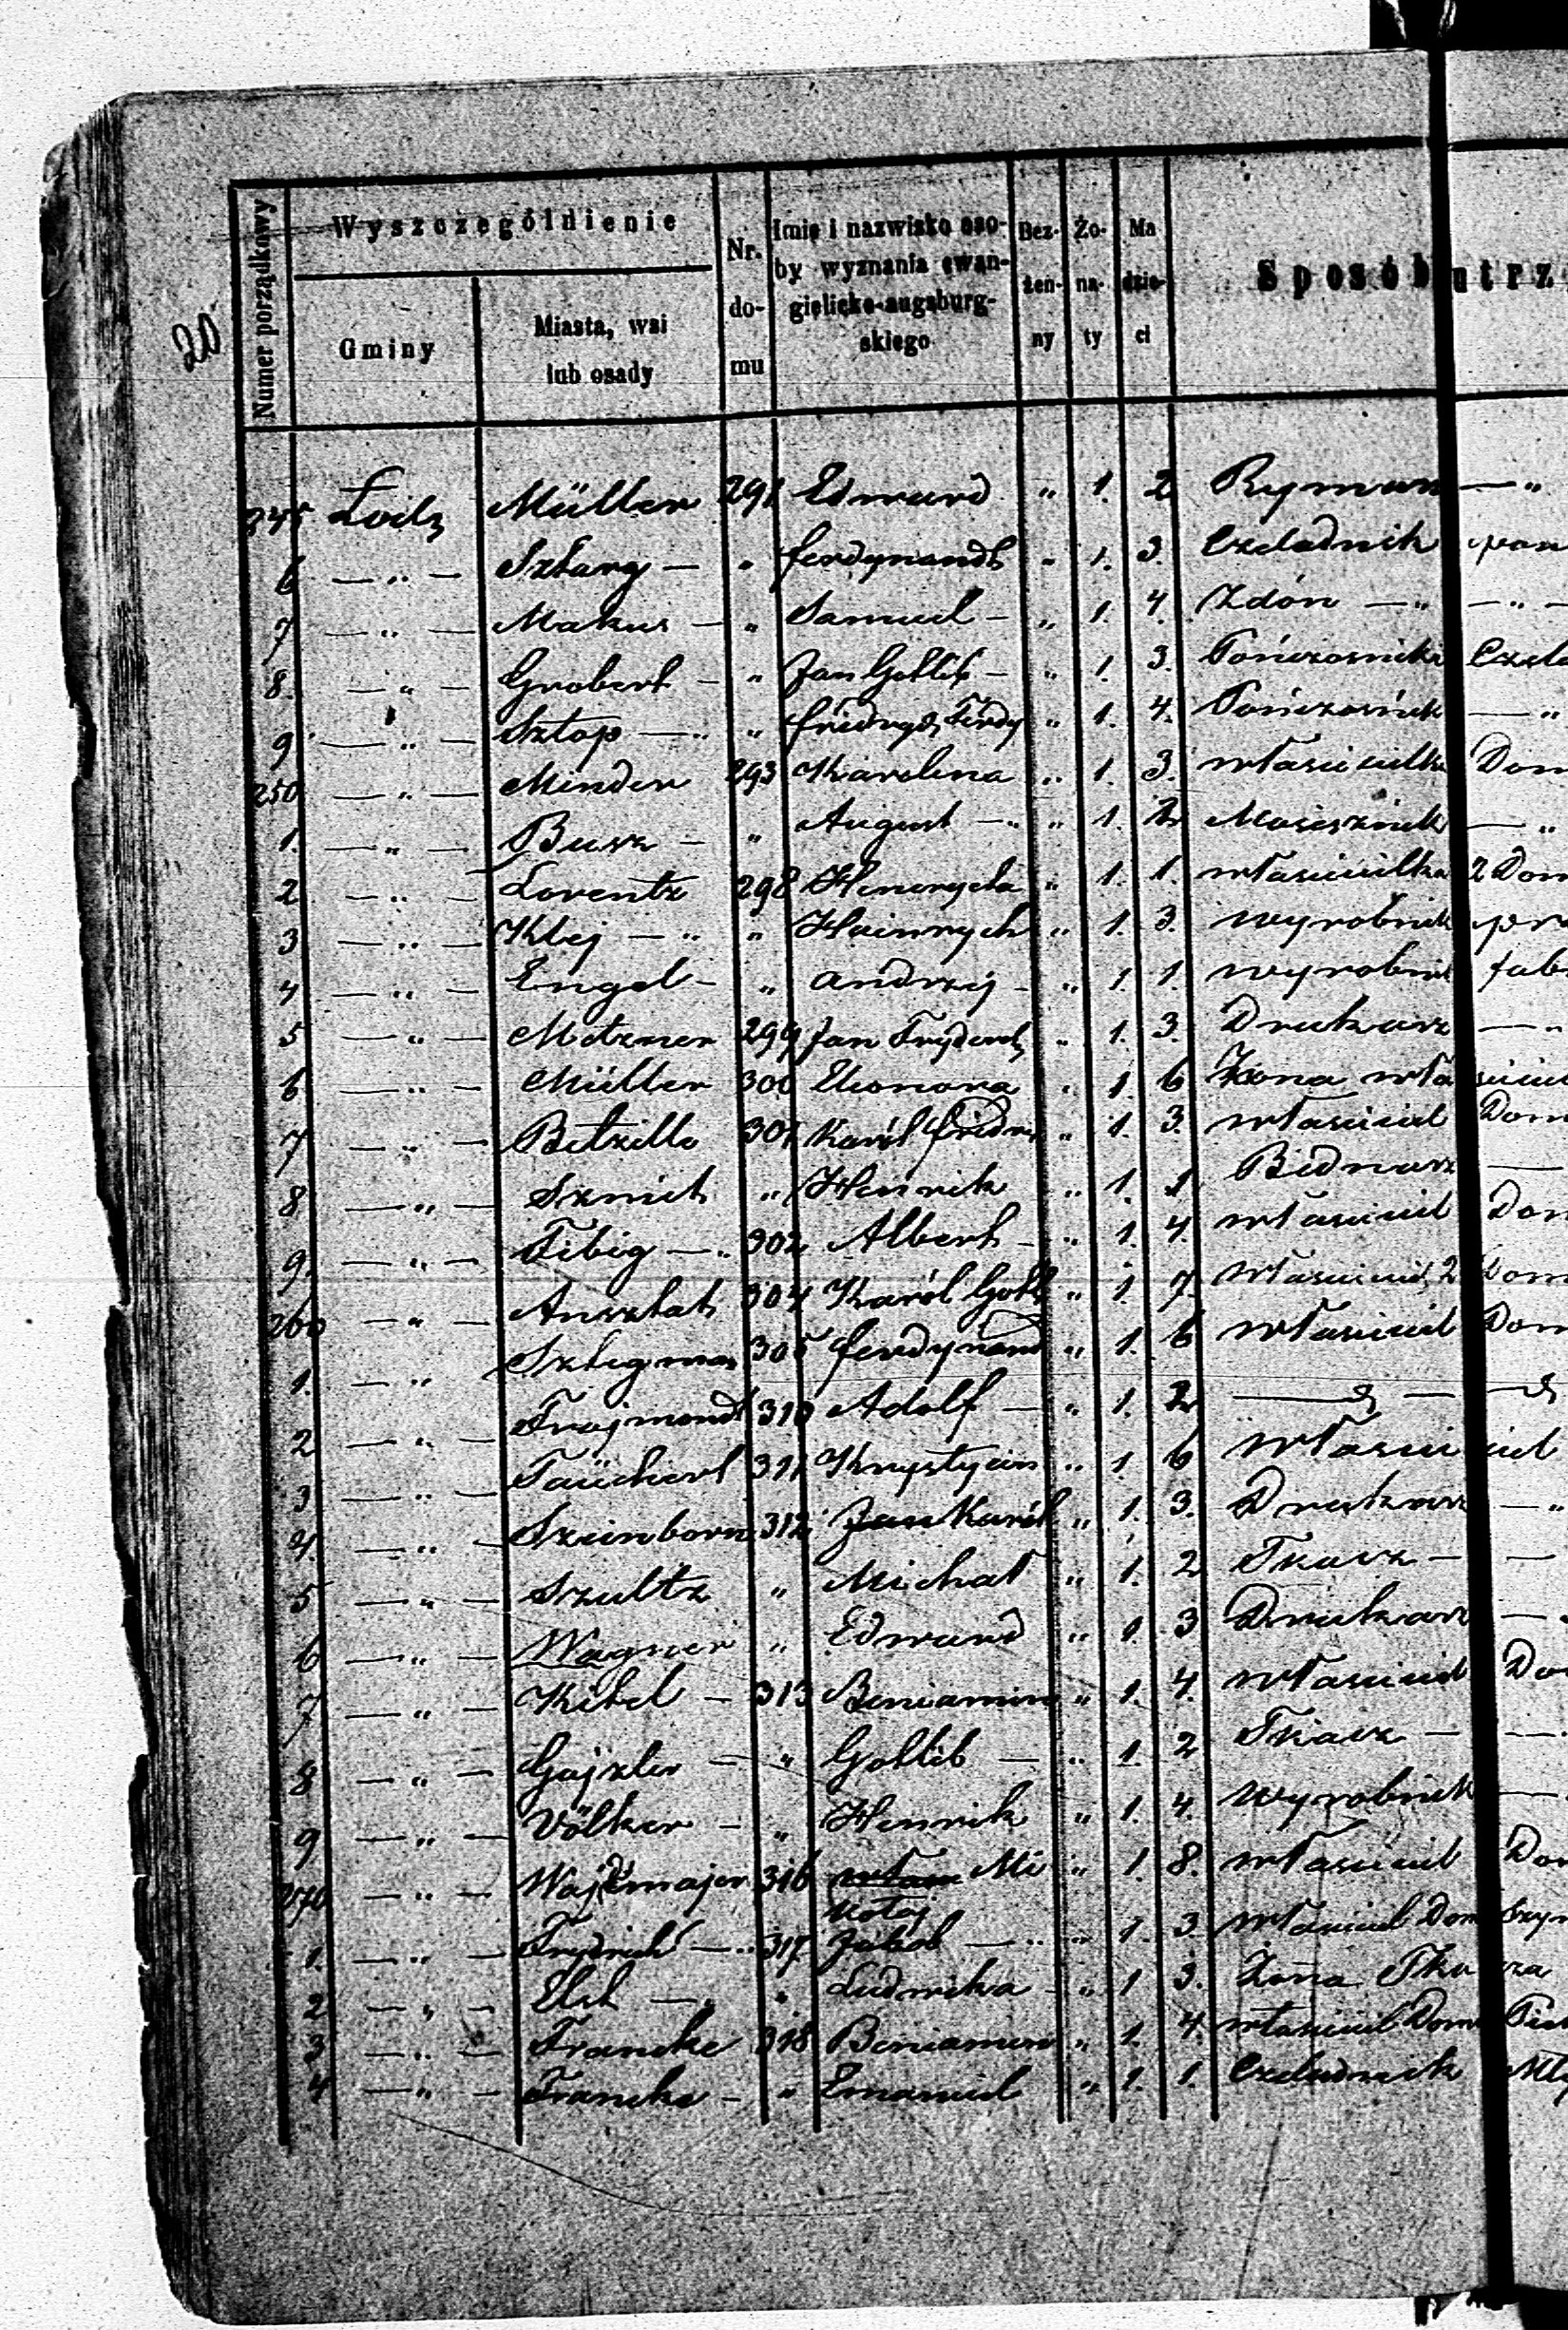 20
Numer porządkowy
Wyszczególnienie
Gminy
Miasta, wsi lub osady
Nr. do- mu
Imię i nazwisko oso- by wyznania ewan- gielicko-augsburg- skiego
Bez- żen- ny
Żo- na- ty
Ma dzie- ci
Sposób utrz
245 Łodz Müller 291 Edward " 1. 2 Rymarz — "
6 — " — Sztary — " ferdynandt " 1. 3. Czeladnik
7 — " — Makus — " Samuel — " 1. 4. Zdón — " — " —
8. — " — Grobert — " Jan Gotlib — " 1. 3. Pończosnicki Czela
9 — " — Sztop — " " fridrych Ferdy " 1. 4. Pończosnick — "
250 — " — Minder 293 Karolina " 1. 3. własicielka Dom
1. — " — Busz — " August — " " 1. 2 — "
2 — " — Lorentz 298 Henryeta " 1. 1. własicielka 2 Dom
3 — " — Klej — " " Hainrych " 1. 3. wyrobnik
4 — " — Engel — " Andrzij — " 1. 1 wyrobnik fab
5 — " — Metzner 299 Jan Frydrych " 1. 3. Drukarz — "
6 — " — Müller 300 Eleonora " 1. 6 Zona własiciel
7 — " — Betzille 301 Karól fridr " 1. 3. własiciel Dom
8 — " — Szmith " Henrik " 1. 1 Bednarz —
9. — " — Fibig — " 302 Albert — " 1. 4 własiciel Dom
260 — " — Ansztat 304 Karól Gotl " 1. 7. własiciel 2 Dom
1. — " Sztegman 305 ferdynand " 1. 6 własiciel Dom
2 — " — Frajmondt 310 Adolf — " 1. 2
3 — " — Taüchert 311 Krystyan " 1. 6 własiciel
4. — " — Szeinborn 312 Jan Karól " 1. 3. Drukarz — "
5 — " — Szultz " Michał " 1. 2 Tkacz — —
6 — " — Wagner " Edward " 1. 3 Drukarz —
7 — " — Kebel — 313 Beniamin " 1. 4. własiciel Do
8 — " — Gajzler — " Gotlib — " 1. 2 Tkacz — —
9 — " — Völker — " Henrik " 1. 4. wyrobnik —
270 — " — Wajdmajer 316 Mi " 1. 8. własiciel Dom
kołaj
1. — " — Frydrich — " 317 Jakob — " " 1. 3. własiciel Dom Szyn
2 — " — — " " Ludwika — " 1 3. Zona Tkacza
3 — " — Francke 318 Beniamin " 1. 4 własiciel Dom
4 — " — Francke — " Emanuel " 1. 1. Czeladnick